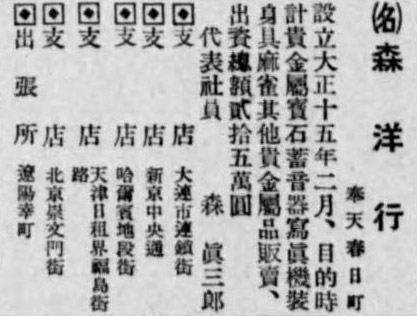 ㈴森洋行
奉天春日町
設立大正十五年二月、目的時
計貴金屬寶石蓄音器寫眞機裝
身具麻雀其他貴金屬品販賣、
出資總額貳拾五萬圓
代表社員 森眞三郎
支店 大連市連鎖街
支店 新京中央通
支店 哈爾賓地段街
支店 天津日租界福島街
路
支店 北京崇文門街
出張所 遼陽幸町